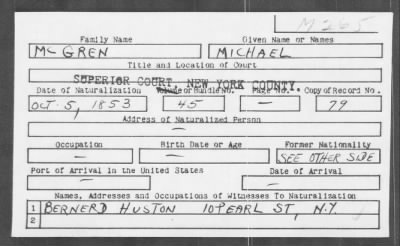 M265
Family Name Given Name or Names
McGREN MICHAEL
Title and Location of Court
SUPERIOR COURT, NEW YORK COUNTY.
Date of Naturalization Volume or Bundle No. Page No. Copy of Record No.
OCT. 5, 1853 45 — 79
Address of Naturalized Person
—
Occupation Birth Date or Age Former Nationality
— — SEE OTHER SIDE
Port of Arrival in the United States Date of Arrival
— —
Names, Addresses and Occupations of Witnesses To Naturalization
1 BERNERD HUSTON 10 PEARL ST, N.Y.
2